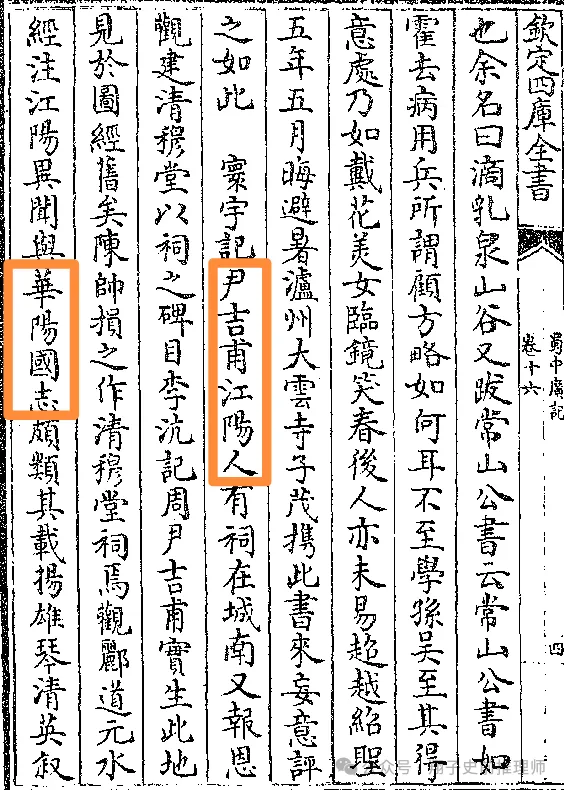 欽定四庫全書
蜀中廣記
卷十六
四
也余名曰滴乳泉山谷又跋常山公書云常山公書如
霍去病用兵所謂顧方略如何耳不至學孫吳至其得
意處乃如戴花美女臨鏡笑春後人亦未易超越紹聖
五年五月晦避暑瀘州大雲寺子茂攜此書來妄意評
之如此　寰宇記尹吉甫江陽人有祠在城南又報恩
觀建清穆堂以祠之碑目李沆記周尹吉甫實生此地
見於圖經舊矣陳帥損之作清穆堂祠焉觀酈道元水
經注江陽異聞與華陽國志頗類其載揚雄琴清英叙
公众号
推理师